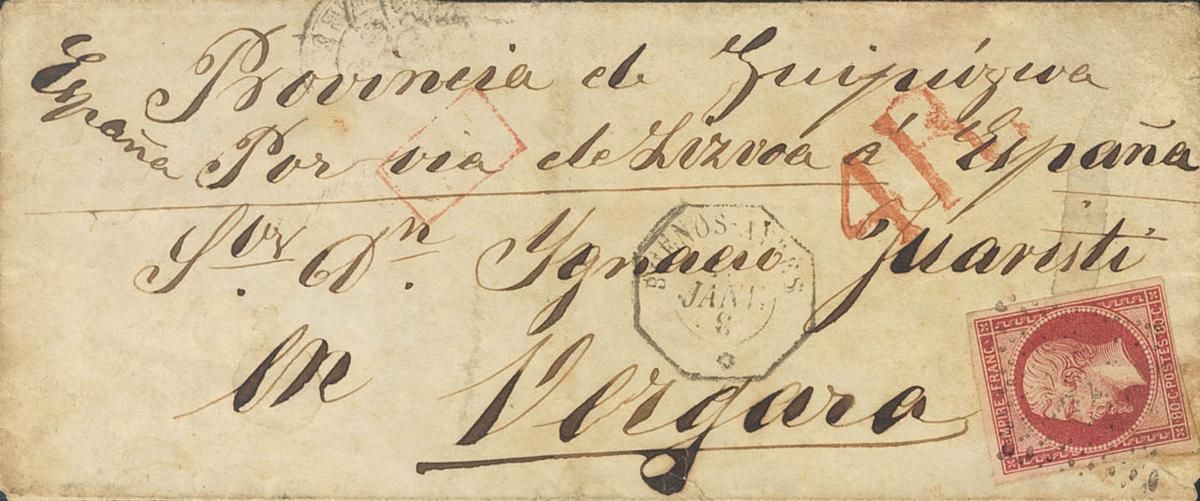 España
Provincia de Guipúzcua
Por via de Lizvoa a España
4 R.
Sor. Dn Ygnacio Juaristi
BUENOS-AYRES
JANV.
8
en Vergara
EMPIRE FRANC.
80 C. POSTES 80 C.